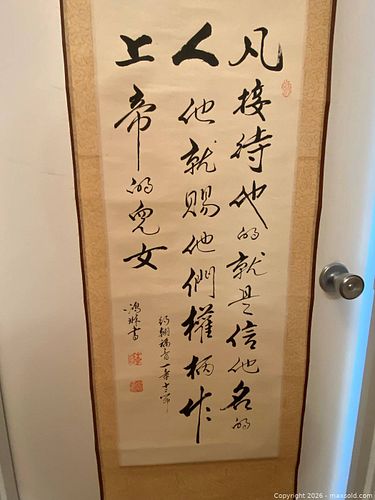 凡接待他的就是信他名的
人他就賜他們權柄作
上帝的兒女
約翰福音一章十二節
鴻彬書
Copyright 2026 - maxsold.com